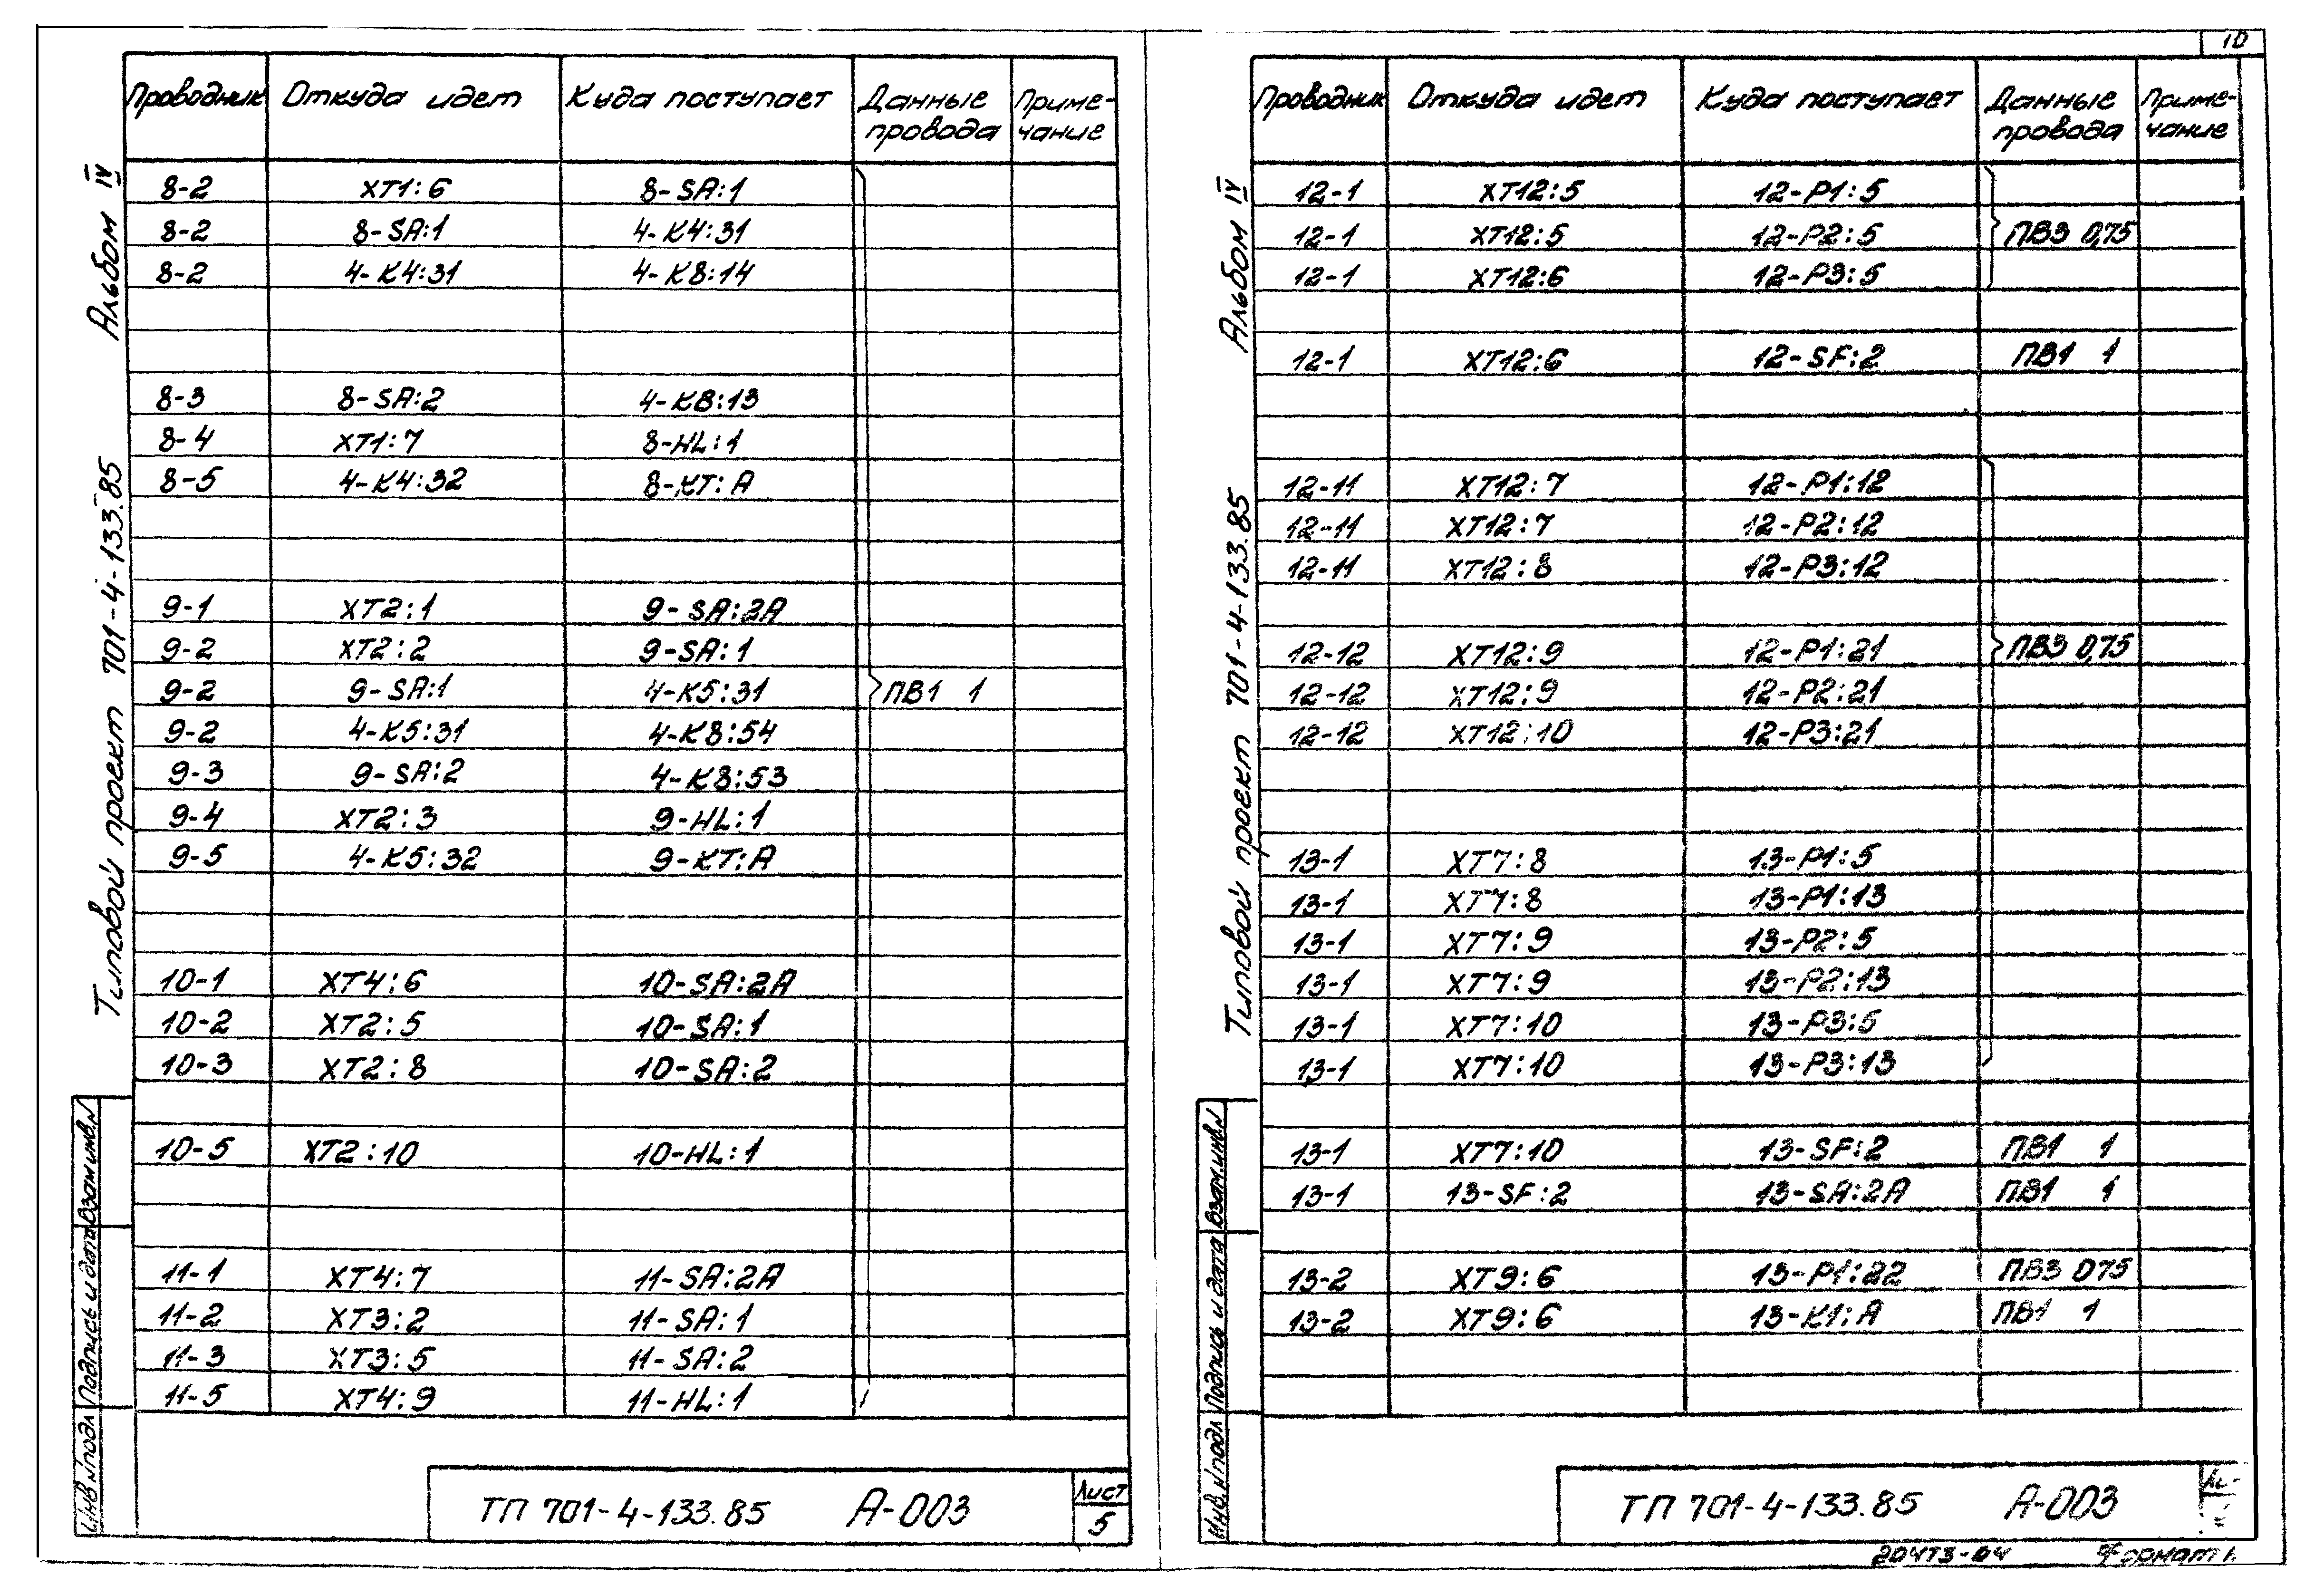 10
Проводник Откуда идет Куда поступает Данные провода Приме-чание
8-2 XT1:6 8-SA:1
8-2 8-SA:1 4-K4:31
8-2 4-K4:31 4-K8:14
8-3 8-SA:2 4-K8:13
8-4 XT1:7 8-HL:1
8-5 4-K4:32 8-KT:A
9-1 XT2:1 9-SA:2A
9-2 XT2:2 9-SA:1
9-2 9-SA:1 4-K5:31 ПВ1 1
9-2 4-K5:31 4-K8:54
9-3 9-SA:2 4-K8:53
9-4 XT2:3 9-HL:1
9-5 4-K5:32 9-KT:A
10-1 XT4:6 10-SA:2A
10-2 XT2:5 10-SA:1
10-3 XT2:8 10-SA:2
10-5 XT2:10 10-HL:1
11-1 XT4:7 11-SA:2A
11-2 XT3:2 11-SA:1
11-3 XT3:5 11-SA:2
11-5 XT4:9 11-HL:1
Альбом IV
Типовой проект 701-4-133.85
Взам.инв.N
Подпись и дата
Инв.N подл
ТП 701-4-133.85 А-003
Лист
5
Проводник Откуда идет Куда поступает Данные провода Приме-чание
12-1 XT12:5 12-P1:5
12-1 XT12:5 12-P2:5 ПВ3 0,75
12-1 XT12:6 12-P3:5
12-1 XT12:6 12-SF:2 ПВ1 1
12-11 XT12:7 12-P1:12
12-11 XT12:7 12-P2:12
12-11 XT12:8 12-P3:12
12-12 XT12:9 12-P1:21 ПВ3 0,75
12-12 XT12:9 12-P2:21
12-12 XT12:10 12-P3:21
13-1 XT7:8 13-P1:5
13-1 XT7:8 13-P1:13
13-1 XT7:9 13-P2:5
13-1 XT7:9 13-P2:13
13-1 XT7:10 13-P3:5
13-1 XT7:10 13-P3:13
13-1 XT7:10 13-SF:2 ПВ1 1
13-1 13-SF:2 13-SA:2A ПВ1 1
13-2 XT9:6 13-P1:22 ПВ3 075
13-2 XT9:6 13-K1:A ПВ1 1
Альбом IV
Типовой проект 701-4-133.85
Взам.инв.N
Подпись и дата
Инв.N подл
ТП 701-4-133.85 А-003
20473-04 Формат